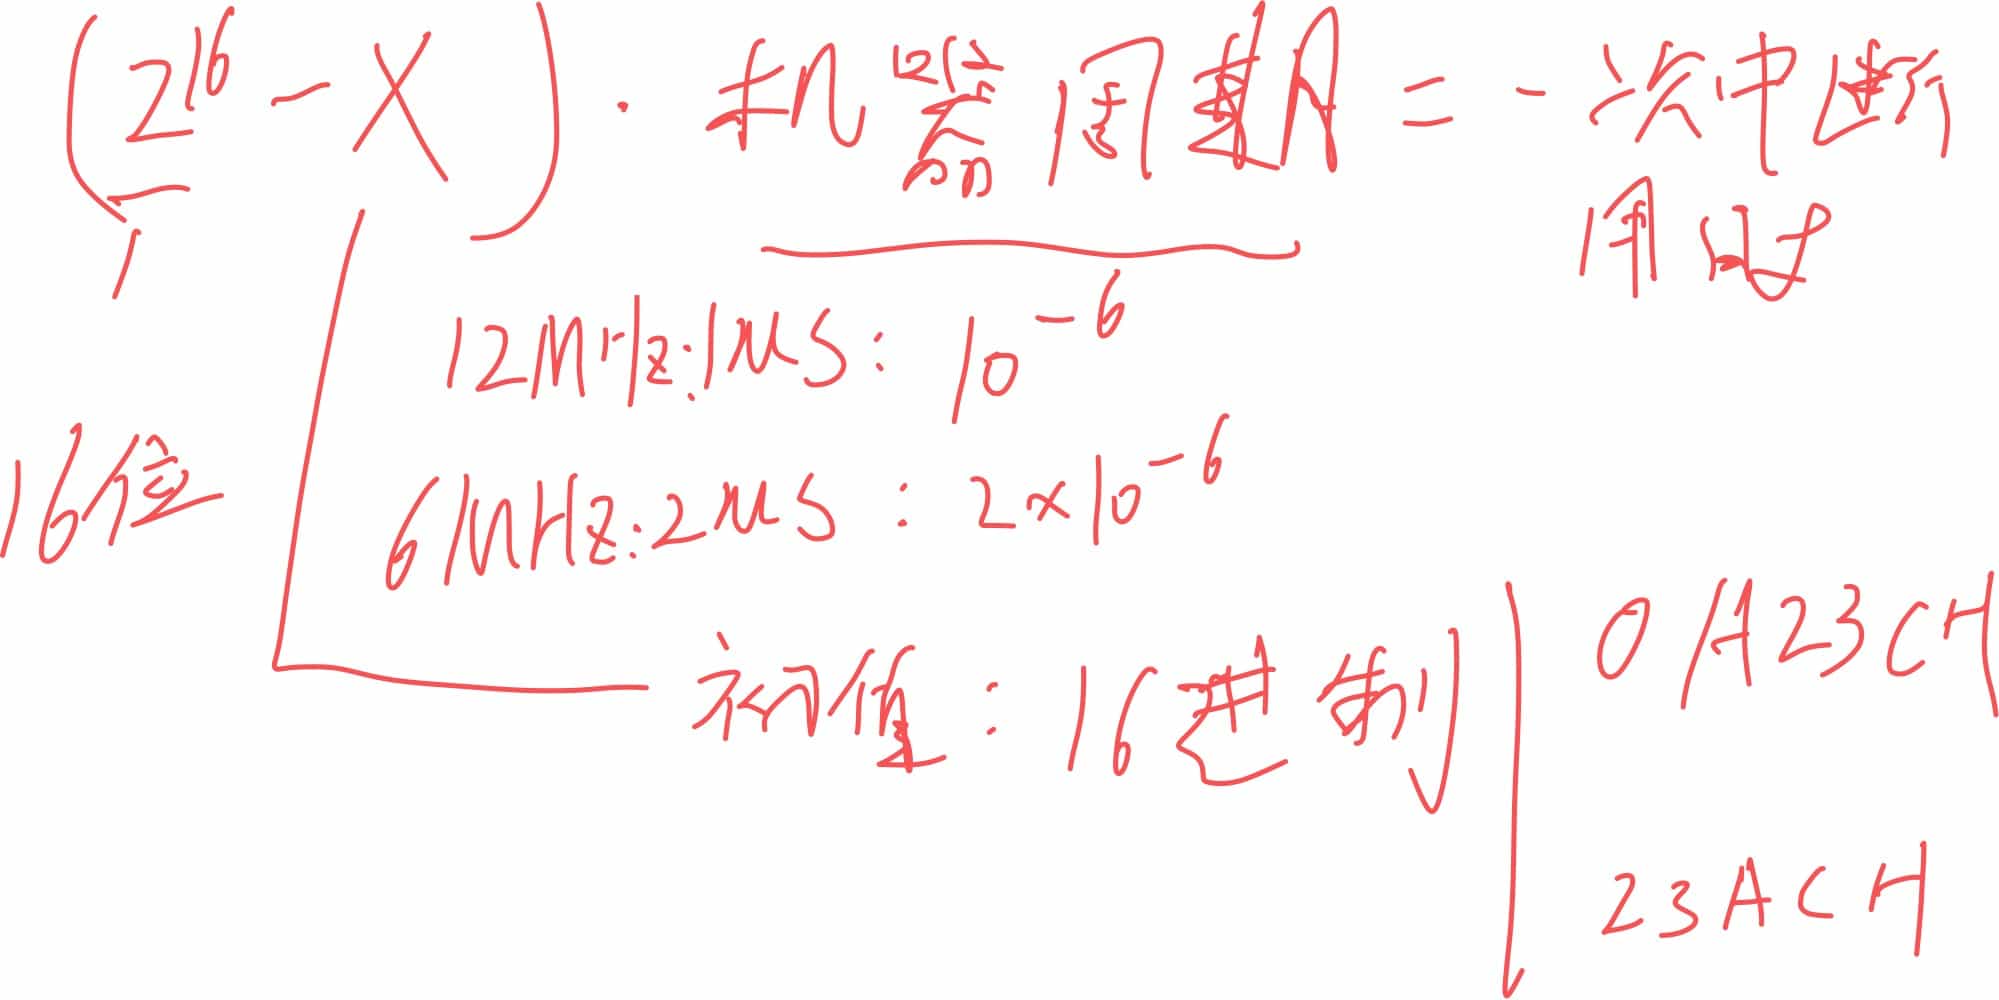 (2^16 - X) · 机器周期 = 一次中断
用时
12MHz:1μs: 10^-6
16位
6MHz:2μs: 2×10^-6
初值: 16进制
0A23CH
23ACH